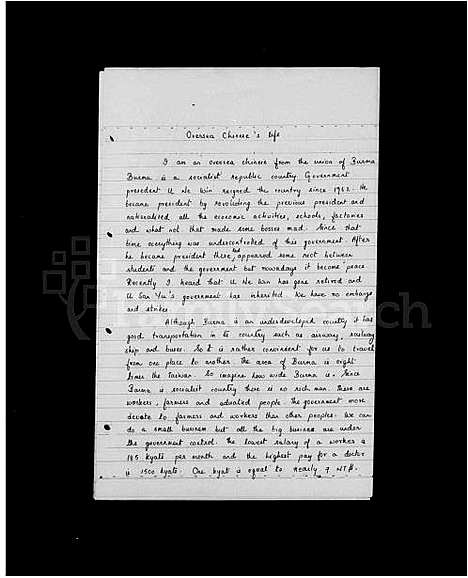 Oversea Chinese's life
I am an oversea chinese from the union of Burma
Burma is a socialist republic country. Government
president U Ne Win reigned the country since 1962. He
became president by revoluting the previous president and
nationalized all the economic activities, schools, factories
and what not that made some bosses mad. Since that
time everything was undercontrolled of this government. After
he became president there, had appeared some riot between
students and the government but nowadays it become peace
Recently I heard that U Ne Win has gone retired and
U San Yu's government has inherited. We have no embargo
and strikes
Although Burma is an underdeveloped country it has
good transportation in its country such as airway, railway
ship and buses. So it is rather convenient for us to travel
from one place to another. The area of Burma is eight
times the Taiwan. So imagine how wide Burma is. Since
Burma is socialist country there is no rich man. There are
workers, farmers and educated people. The government more
devote to farmers and workers than other peoples. We can
do a small business but all the big business are under
the government control. The lowest salary of a worker is
195 kyats per month and the highest pay for a doctor
is 1500 kyats. One kyat is equal to nearly 7 NT$.